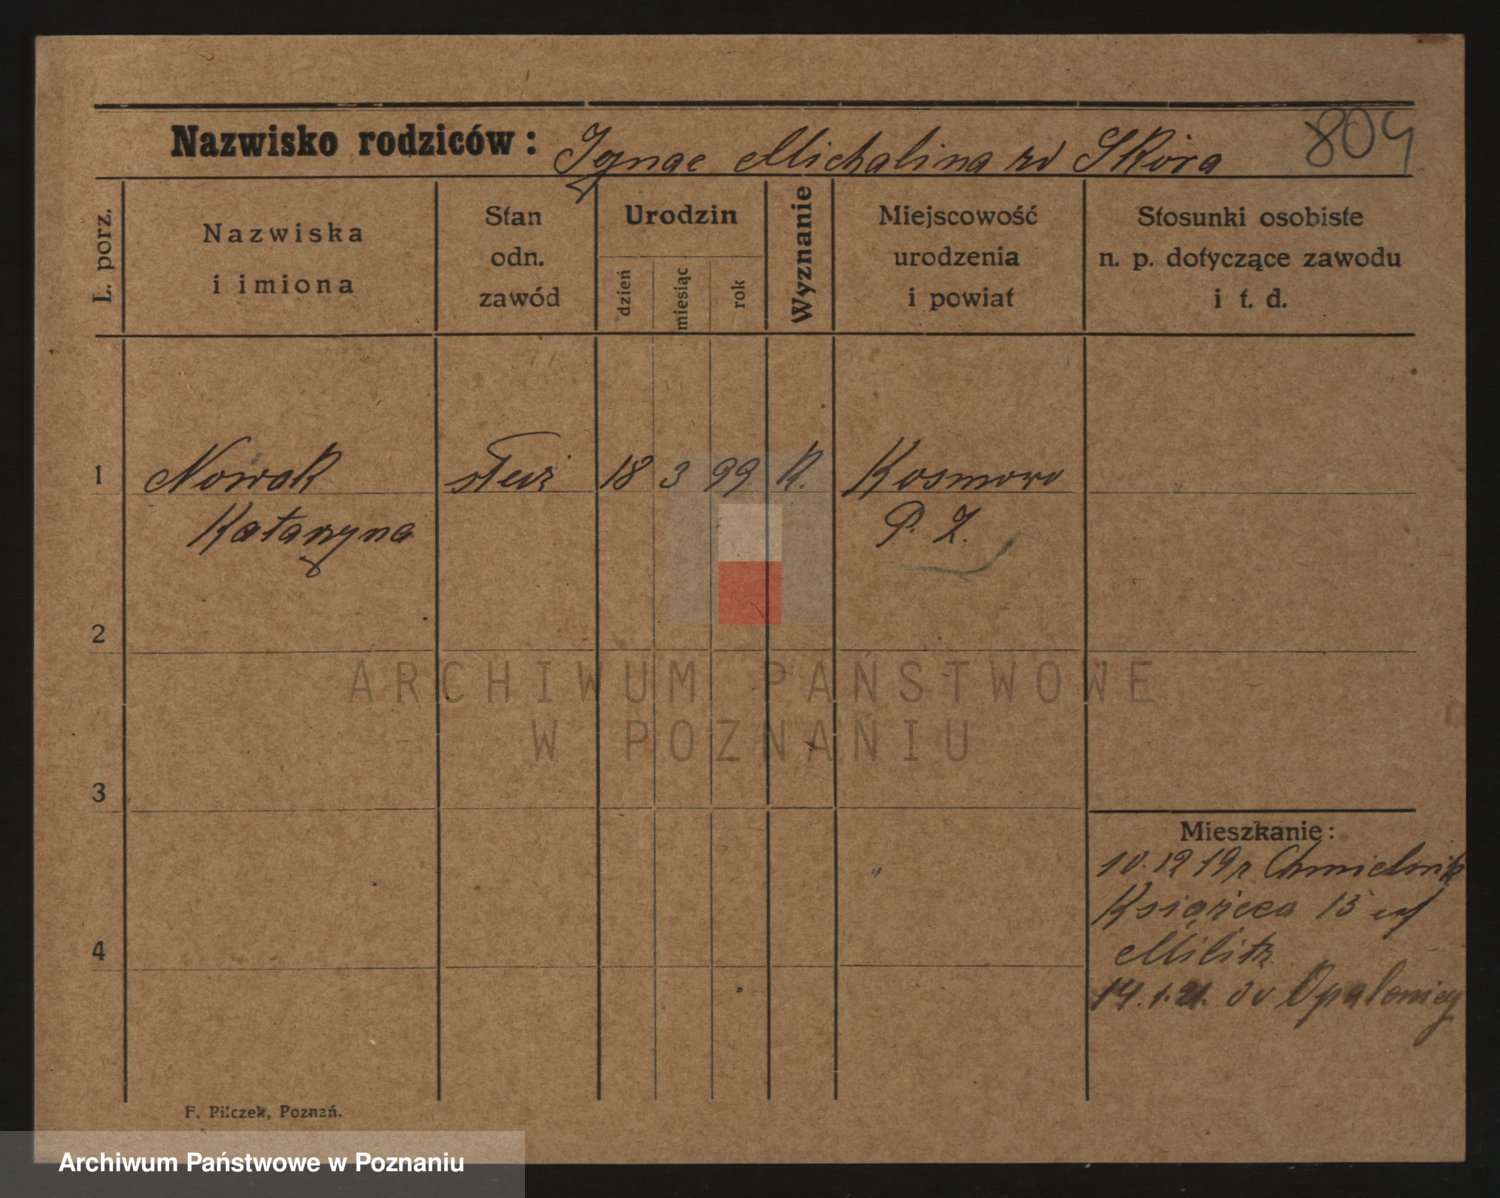 804
Nazwisko rodziców: Ignac Michalina zd Skóra
L. porz.
Nazwiska
i imiona
Stan
odn.
zawód
Urodzin
dzień
miesiąc
rok
Wyznanie
Miejscowość
urodzenia
i powiat
Stosunki osobiste
n. p. dotyczące zawodu
i t. d.
1 Nowak służ 18 3 99 K. Kosmowo
Katarzyna P. Z.
2
ARCHIWUM PAŃSTWOWE
W POZNANIU
3
Mieszkanie:
10.12 19 r. Chmielnik
Książęca 13
Militz
4
14.1.21. do Opalenicy
F. Pilczek, Poznań.
Archiwum Państwowe w Poznaniu